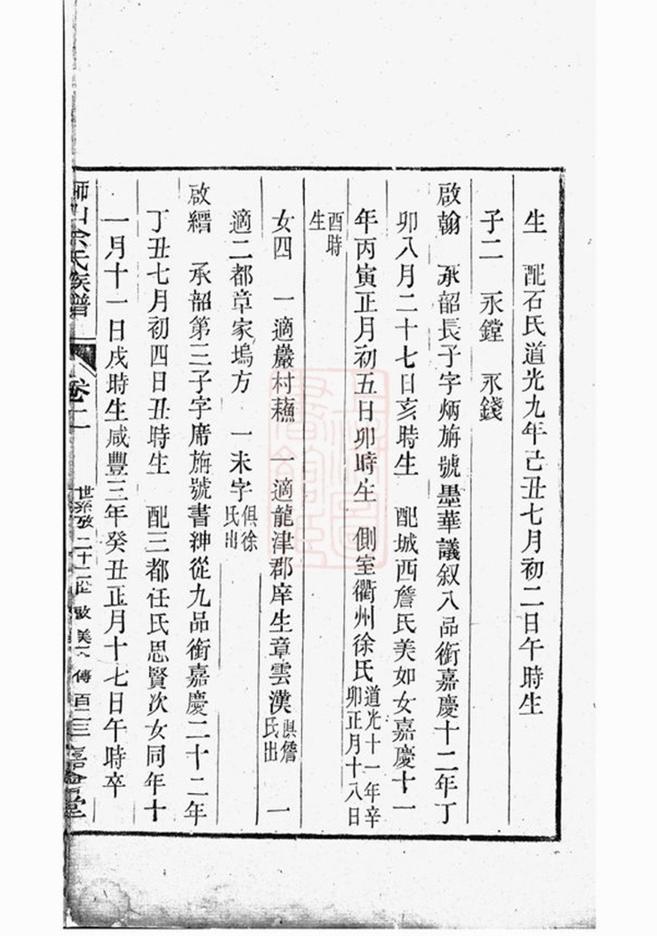 生　配石氏道光九年己丑七月初二日午時生
子二　永鏜　永錢
啟翰　承韶長子字炳旃號墨華議叙八品銜嘉慶十二年丁
卯八月二十七日亥時生　配城西詹氏美如女嘉慶十一
年丙寅正月初五日卯時生　側室衢州徐氏道光十一年辛卯正月十八日
酉時生
女四　一適嚴村蘓　一適龍津郡庠生章雲漢俱詹氏出　一
適二都章家塢方　一未字俱徐氏出
啟縉　承韶第三子字席旃號書紳從九品銜嘉慶二十二年
丁丑七月初四日丑時生　配三都任氏思賢次女同年十
一月十一日戌時生咸豐三年癸丑正月十七日午時卒
余氏族譜　卷十一　世系攷　二十二　嘉會堂